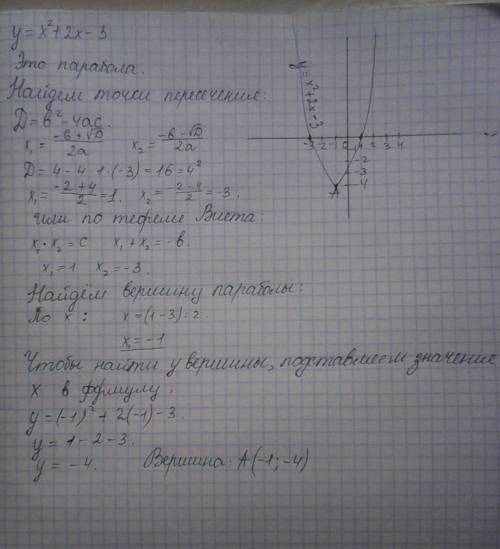 y = x² + 2x - 3
Это парабола.
Найдем точки пересечения:
D = b² - 4ac.
x₁ = (-b + √D)/2a    x₂ = (-b - √D)/2a
D = 4 - 4 · 1 · (-3) = 16 = 4²
x₁ = (-2 + 4)/2 = 1.    x₂ = (-2 - 4)/2 = -3.
или по теореме Виета:
x₁ · x₂ = c    x₁ + x₂ = -b.
x₁ = 1    x₂ = -3.
Найдём вершину параболы:
По x :    x = (1 - 3) : 2.
x = -1
Чтобы найти y вершины, подставляем значение
x в формулу:
y = (-1)² + 2(-1) - 3.
y = 1 - 2 - 3.
y = -4.    Вершина: A(-1; -4)
y = x² + 2x - 3
-3 -2 -1 0 1 2 3 4
-2
-3
-4
A